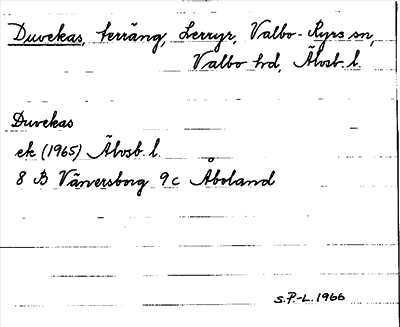 Duvekas, terräng, Lerryr, Valbo-Ryrs sn,
Valbo hd, Älvsb. l.
Duvekas
ek (1965) Älvsb. l.
8 B Vänersborg 9c Åboland
S.P.-L. 1966